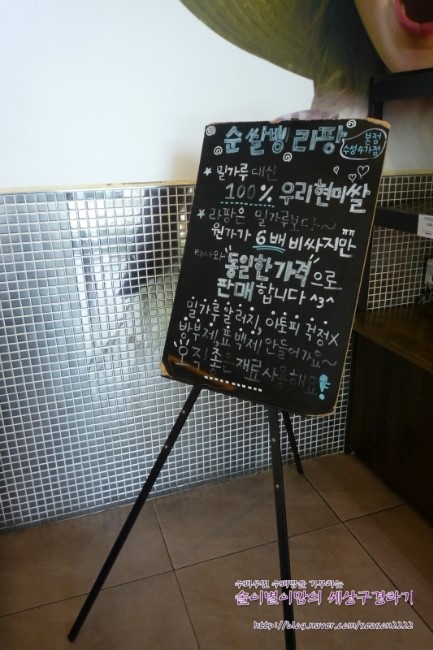 순쌀빵 라팡
본점
수성4가점
★ 밀가루 대신
100% 우리현미쌀
★ 라팡은 밀가루보다~
원가가 6배 비싸지만 ㅠㅠ
동일한가격으로
판매합니다 ^3^
밀가루알러지, 아토피 걱정X
방부제, 표백제 안들어가요~
오직 좋은 재료 사용해요!
솔이별이맘의 세상구경하기
http://blog.naver.com/season2222